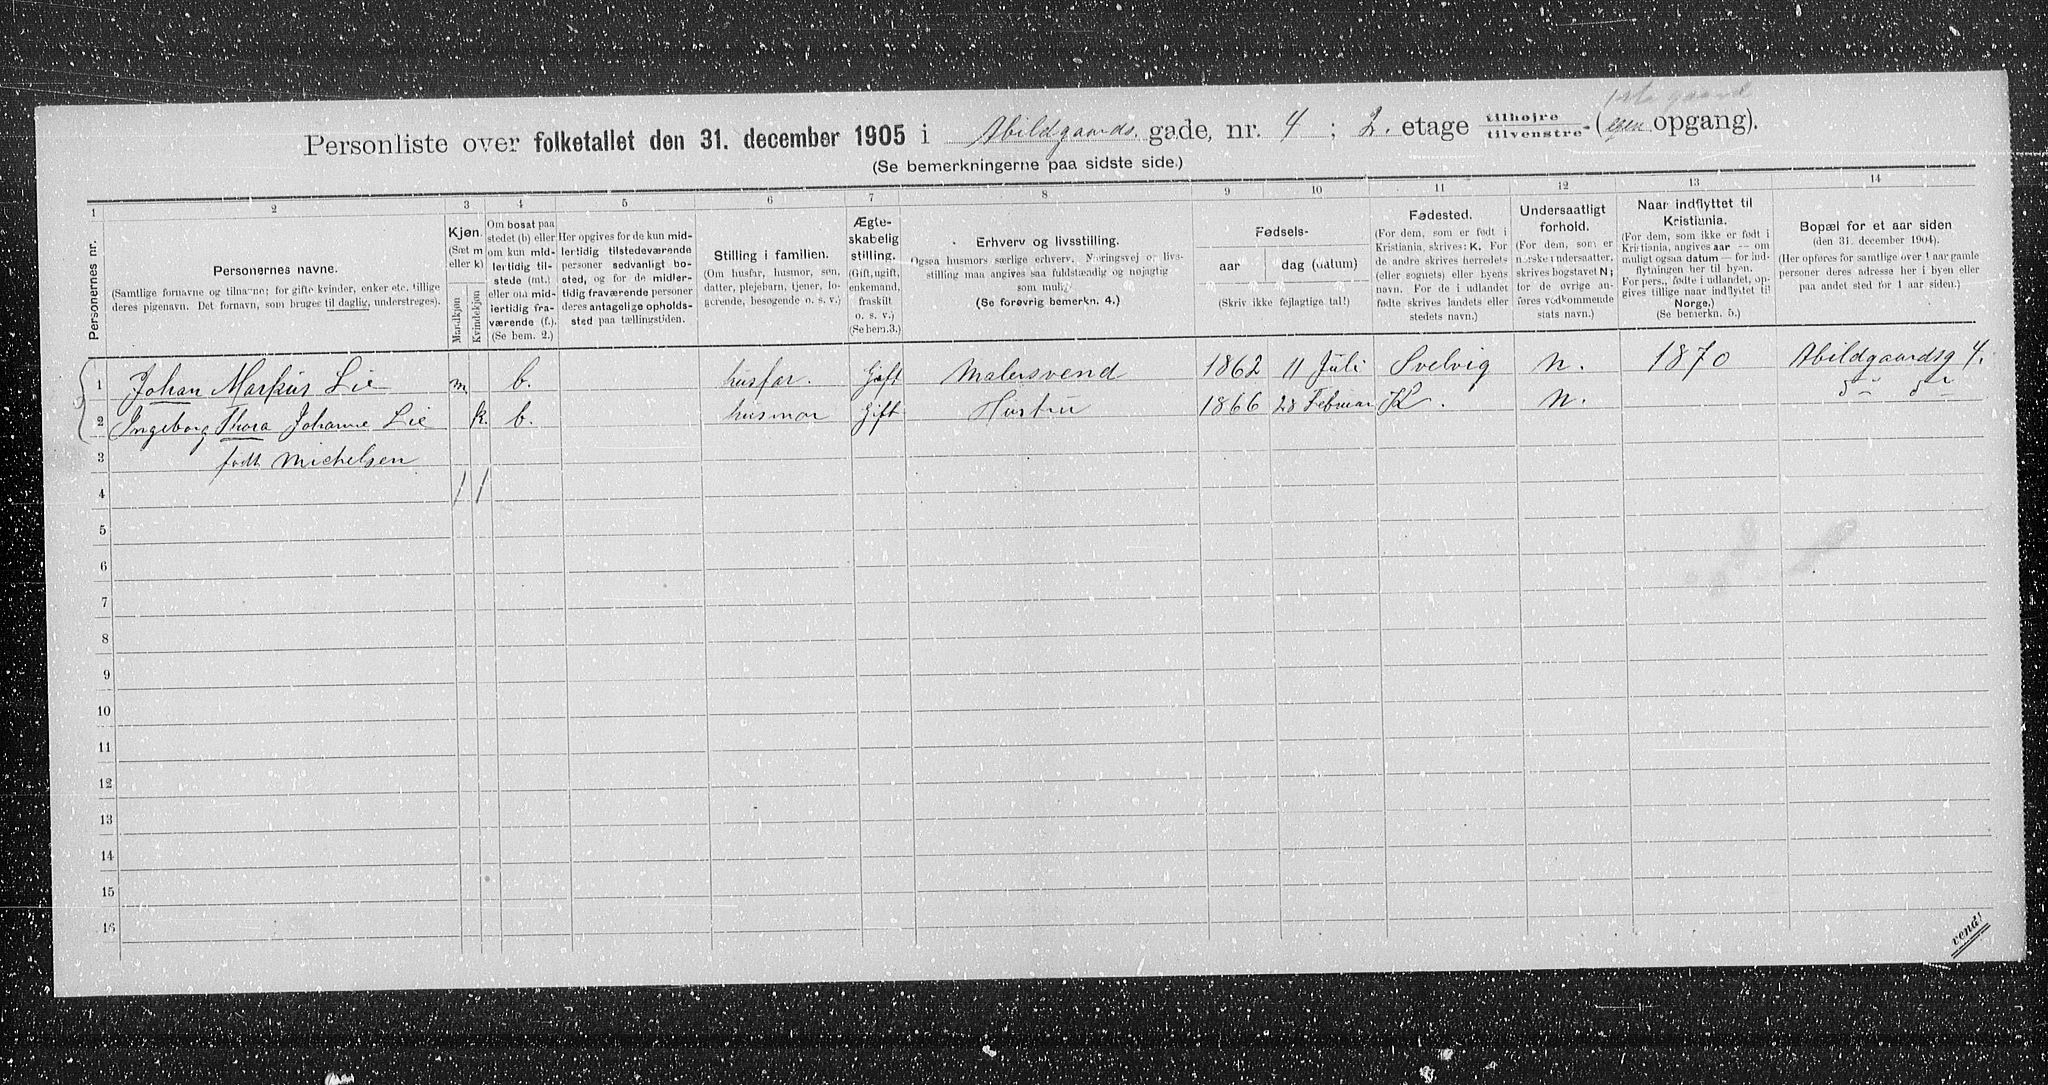 Personliste over folketallet den 31. december 1905 i Abildgaards. gade, nr. 4 ; 2. etage tilhøjre tilvenstre - (egen opgang).
(Se bemerkningerne paa sidste side.)
1 2 3 4 5 6 7 8 9 10 11 12 13 14
Personernes nr.
Personernes navne.
(Samtlige fornavne og tilnavne; for gifte kvinder, enker etc. tillige
deres pigenavn. Det fornavn, som bruges til daglig, understreges).
Kjøn.
(Sæt m
eller k)
Mandkjøn
Kvindekjøn
Om bosat paa
stedet (b) eller
om kun mid-
lertidig til-
stede (mt.)
eller om mid-
lertidig fra-
værende (f.).
(Se bem. 2.)
Her opgives for de kun mid-
lertidig tilstedeværende
personer sedvanligt bo-
sted, og for de midler-
tidig fraværende personer
deres antagelige opholds-
sted paa tællingstiden.
Stilling i familien.
(Om husfar, husmor, søn,
datter, plejebarn, tjener, lo-
gerende, besøgende o. s. v.)
Ægte-
skabelig
stilling.
(Gift, ugift,
enkemand,
fraskilt
o. s. v.)
(Se bem. 3.)
Erhverv og livsstilling.
Ogsaa husmors særlige erhverv. Næringsvej og livs-
stilling maa angives saa fuldstændig og nøjagtig
som mulig.
(Se forøvrig bemerkn. 4.)
Fødsels-
aar
dag (datum)
(Skriv ikke fejlagtige tal!)
Fødested.
(For dem, som er født i
Kristiania, skrives: K. For
de andre skrives herredets
(eller sognets) eller byens
navn. For de i udlandet
fødte skrives landets eller
stedets navn.)
Undersaatligt
forhold.
(For dem, som er
norske undersaatter,
skrives bogstavet N;
for de øvrige an-
føres vedkommende
stats navn.)
Naar indflyttet til
Kristiania.
(For dem, som ikke er født i
Kristiania, angives aar — om
muligt ogsaa datum — for ind-
flytningen her til byen.
For pers., fødte i udlandet, op-
gives tillige naar indflyttet til
Norge.)
(Se bemerkn. 5.)
Bopæl for et aar siden
(den 31. december 1904).
(Her opføres for samtlige over 1 aar gamle
personer deres adresse her i byen eller
paa andet sted for 1 aar siden.)
1 Johan Markus Lie m b. husfar. Gift Malersvend 1862 11 Juli Svelvig N. 1870 Abildgaardsg 4.
2 Ingeborg Thora Johanne Lie k. b. husmor Gift Hustru 1866 28 Februar K. N. do do
3 født Michelsen
4 1 1
5
6
7
8
9
10
11
12
13
14
15
16
vend!